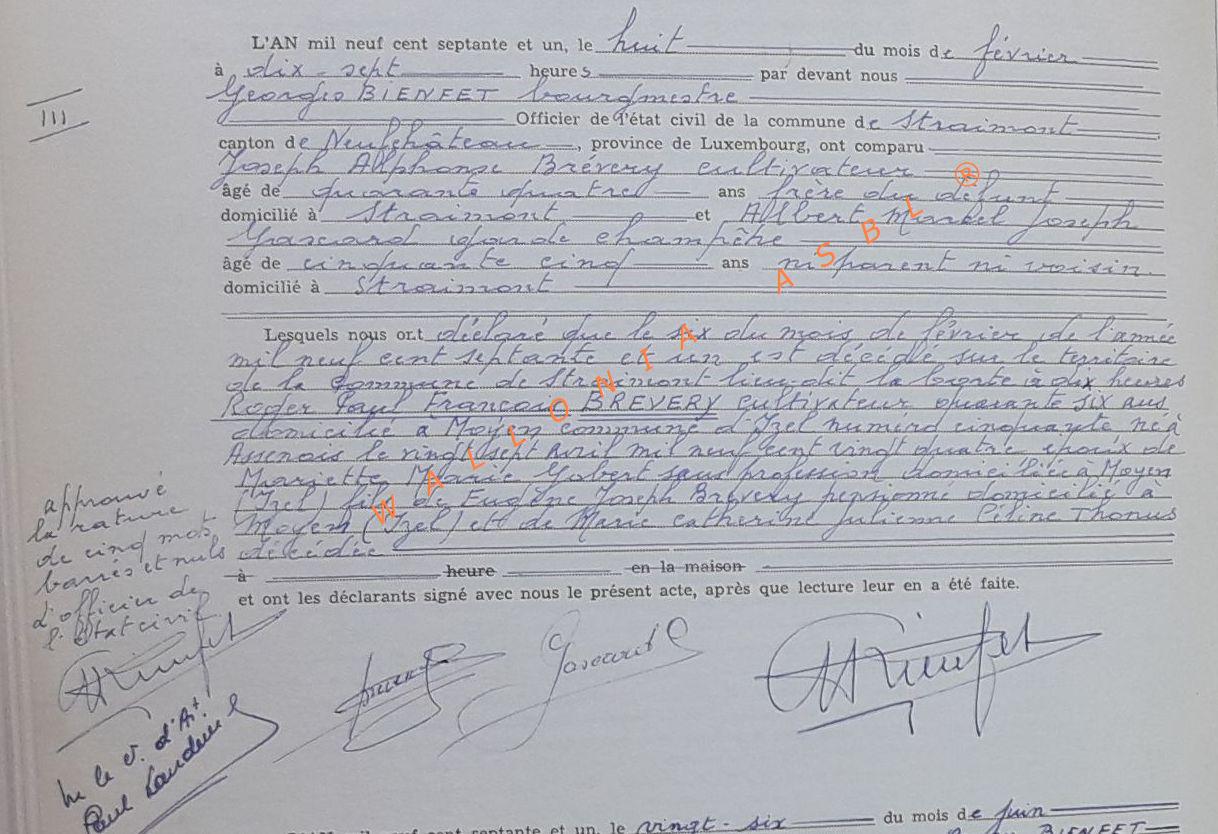 L'AN mil neuf cent septante et un, le huit du mois de février
à dix-sept heures par devant nous
III
Georges BIENFET bourgmestre
Officier de l'état civil de la commune de Straimont
canton de Neufchâteau, province de Luxembourg, ont comparu
Joseph Alphonse Brévery cultivateur
âgé de quarante quatre ans frère du défunt
domicilié à Straimont et Albert Marcel Joseph
garde champêtre
âgé de cinquante cinq ans ni parent ni voisin
domicilié à Straimont
Lesquels nous ont déclaré que le six du mois de février de l'année
mil neuf cent septante et un est décédé sur le territoire
de la Commune de Straimont lieu-dit la à dix heures
Roger Paul François BREVERY cultivateur quarante six ans
domicilié à Moyen commune d'Izel numéro cinquante né à
Assenois le vingt sept avril mil neuf cent vingt quatre époux de
Mariette Marie Gobert sans profession domiciliée à Moyen
(Izel) fils de Eugène Joseph Brévery pensionné domicilié à
Moyen (Izel) et de Marie Catherine Julienne Céline Thonus
décédée
à heure en la maison
et ont les déclarants signé avec nous le présent acte, après que lecture leur en a été faite.
approuvé
la rature
de cinq mots
barrés et nuls
l'officier de
l'Etat civil
Vu le v. d'Art
Paul
WALLONIA ASBL ®
neuf cent septante et un, le vingt-six du mois de juin
BIENFET